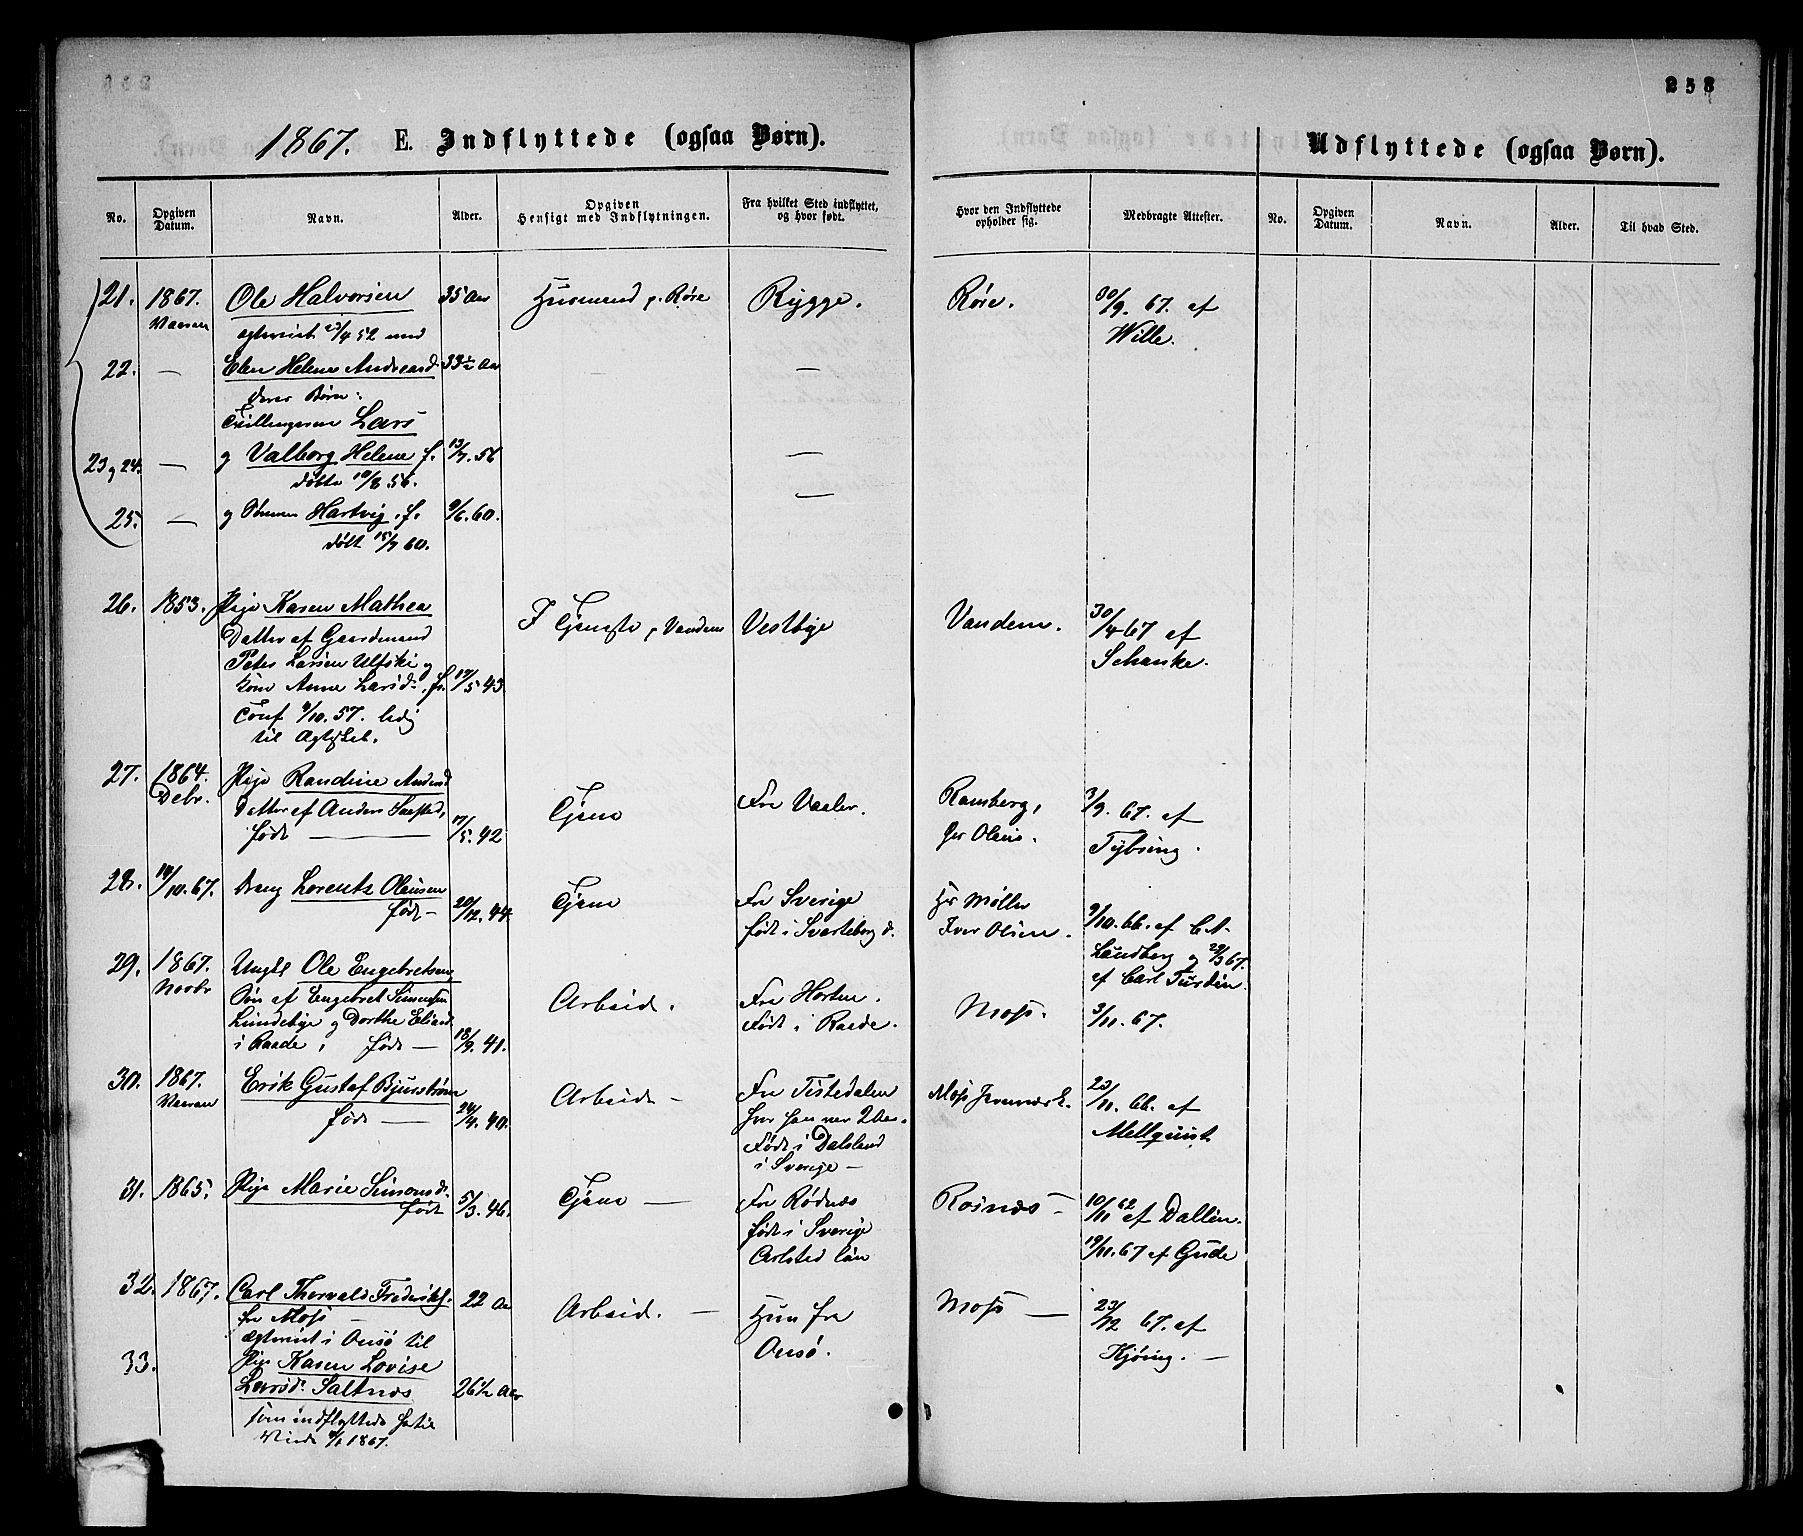 258
1867. E. Indflyttede (ogsaa Børn).
Udflyttede (ogsaa Børn).
No. Opgiven Datum. Navn. Alder. Opgiven Hensigt med Indflytningen. Fra hvilket Sted indflyttet, og hvor født. Hvor den Indflyttede opholder sig. Medbragte Attester. No. Opgiven Datum. Navn. Alder. Til hvad Sted.
21. 1867. Ole Halvorsen 35 Aar Husmand p. Røre Rygge. Røre. 30/9. 67. af
Vaaren ægteviet 23/4 52 med Wille.
22. — Elen Helene Andreasd. 33½ Aar — —
deres Børn:
Tvillingerne Lars
23 og 24. — og Valborg Helene f. 13/7. 56 —
døbte 10/8 56.
25. — og Sønnen Hartvig. f. 9/6. 60. —
døbt 15/7 60.
26. 1853. Pige Karen Mathea I Tjeneste p. Vandem Vestbye Vandem. 30/4 67 af
Datter af Gaardmand Schanke.
Peter Larsen Ulfski og
Kone Anne Larsd. f. 17/5 43
Conf 4/10. 57. ledig
til Ægteskab.
27. 1864. Pige Randine Andersd. Tjene Fra Vaaler. Ramberg, 3/9. 67. af
Debr. Datter af Anders født — 17/5. 42 hos Olaus. Tybring.
28. 14/10. 67. Dreng Lorentz Olausen Tjene Fra Sverige Hos Møller 9/10. 66. af C A
født — 20/12. 44. født i Svarteborg d. Iver Olsen. Lundberg og 29/3 67.
af Carl Turdin.
29. 1867. Ungkl Ole Engebretsen Arbeid. Fra Horten. Moss. 3/11. 67.
Novbr Søn af Engebret Simensen Født i Raade.
Lundebye og Dorthe Eliasd.
i Raade, født — 18/9. 41.
30. 1867. Erik Gustaf Bjurstrøm Arbeide — Fra Tistedalen Moss Jernværk. 23/11. 66. af
Vaaren født — 24/4. 40. hvor han var 2 Aar. Mellquist.
Født i Dalsland
i Sverige —
31. 1865. Pige Marie Simonsd. Tjene — Fra Rødnæs Rosnæs — 10/11 62 af Dallin.
født 5/3. 46. født i Sverige 19/11. 67 af Gude
Carlsted län
32. 1867. Carl Thorvald Frederiks. 22 Aar Arbeid. — Hun fra Moss — 23/12 67. af
fra Moss — Onsø. Kjøing. —
ægteviet i Onsø til
33. Pige Karen Lovise
Larsd. Saltnæs 26½ Aar
som indflyttede hertil
1867.